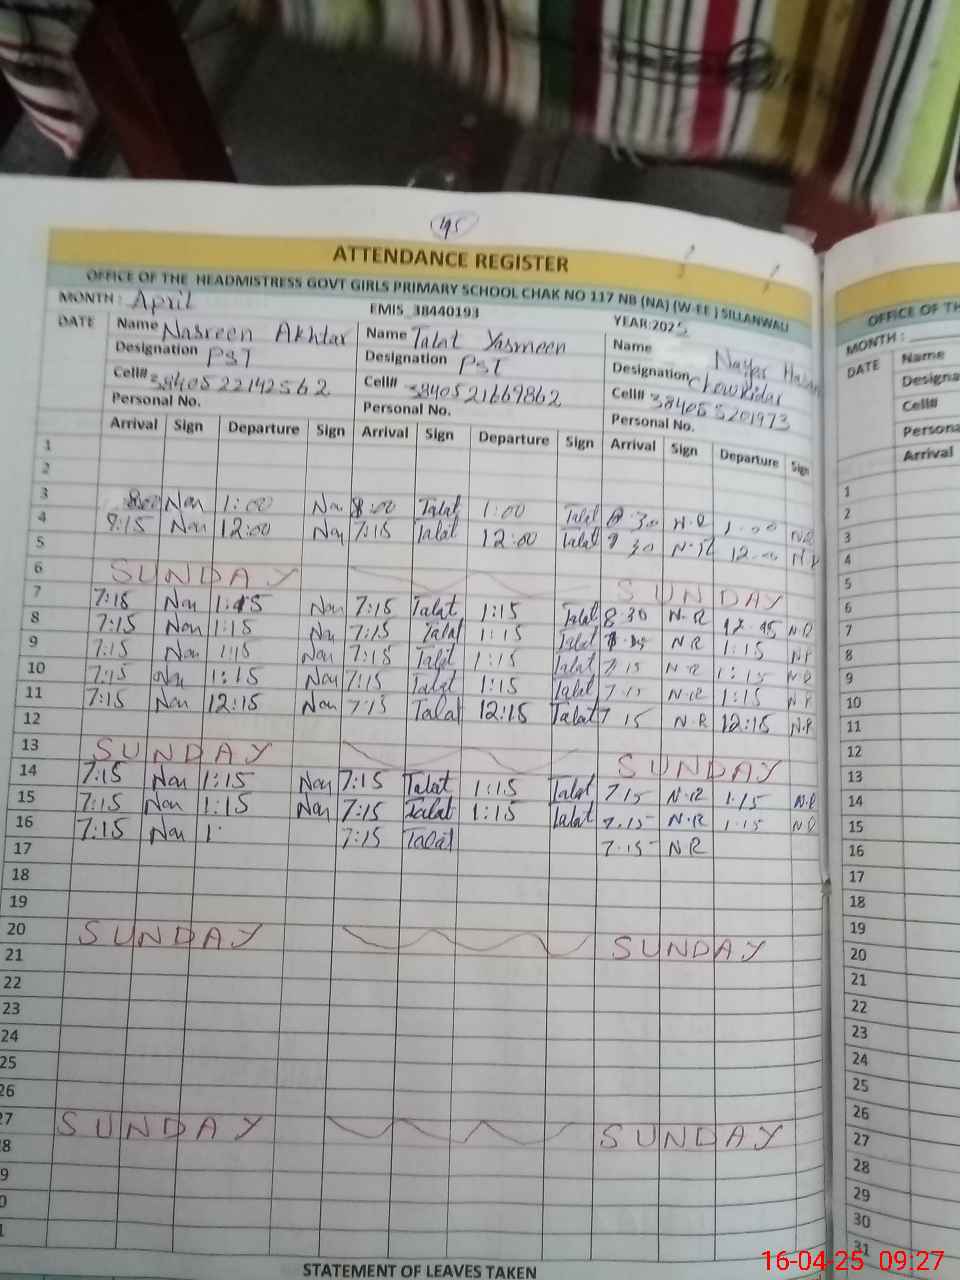 45
ATTENDANCE REGISTER
OFFICE OF THE HEADMISTRESS GOVT GIRLS PRIMARY SCHOOL CHAK NO 117 NB (NA) (W-EE) SILLANWALI
MONTH: April EMIS_38440193 YEAR:2025
DATE Name Nasreen Akhtar Name Talat Yasmeen Name
Designation PST Designation PST Designation Chowkidar
Cell# 3840522142562 Cell# 3840521669862 Cell# 384055201973
Personal No. Personal No. Personal No.
Arrival Sign Departure Sign Arrival Sign Departure Sign Arrival Sign Departure Sign
1
2
3 8:00 Nan 1:00 Nan 8:00 Talat 1:00 Talat 8 30 N.R 1.00 N.R
4 8:15 Nan 12:00 Nan 7:15 Talat 12:00 Talat 30 N.R 12.00 N.R
5
6 SUNDAY SUNDAY
7 7:15 Nan 1:15 Nan 7:15 Talat 1:15 Talat 8.30 N.R 12.45 N.R
8 7:15 Nan 1:15 Nan 7:15 Talat 1:15 Talat N R 1:15 N.R
9 7:15 Nan 1:15 Nan 7:15 Talat 1:15 Talat 7.15 N.R 1:15 N.R
10 7:15 Nan 1:15 Nan 7:15 Talat 1:15 Talat 7.15 N.R 1:15 N.R
11 7:15 Nan 12:15 Nan 7:15 Talat 12:15 Talat 7 15 N.R 12:15 N.R
12
13 SUNDAY SUNDAY
14 7:15 Nan 1:15 Nan 7:15 Talat 1:15 Talat 7 15 N.R 1.15 N.R
15 7:15 Nan 1:15 Nan 7:15 Talat 1:15 Talat 7.15 N.R 1.15 N.R
16 7:15 Nan 1: 7:15 Talat 7.15 N R
17
18
19
20 SUNDAY SUNDAY
21
22
23
24
25
26
27 SUNDAY SUNDAY
8
9
0
1
STATEMENT OF LEAVES TAKEN
OFFICE OF TH
MONTH:
DATE Name
Designa
Cell#
Persona
Arrival
1
2
3
4
5
6
7
8
9
10
11
12
13
14
15
16
17
18
19
20
21
22
23
24
25
26
27
28
29
30
31
16-04-25 09:27